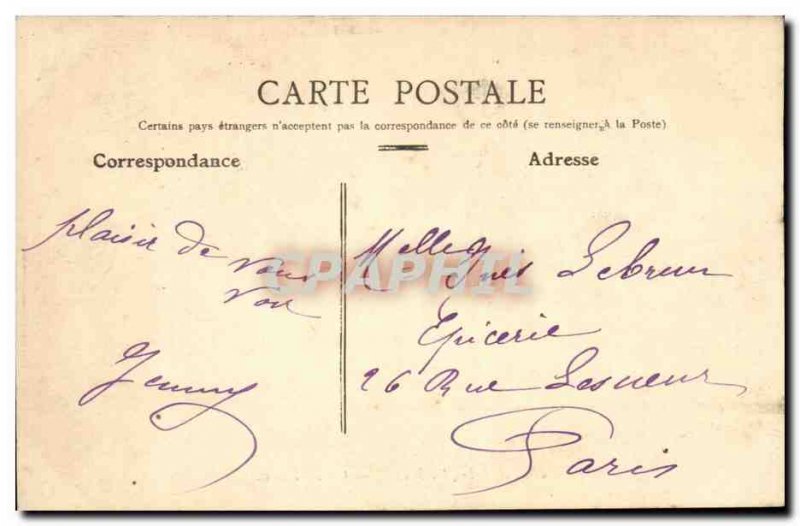 CARTE POSTALE
Certains pays étrangers n'acceptent pas la correspondance de ce côté (se renseigner à la Poste)
Correspondance
Adresse
plaisir de vous
voir
Jenny
Melle Inès Lebrun
Epicerie
26 Rue Lesueur
Paris
CPAPHIL